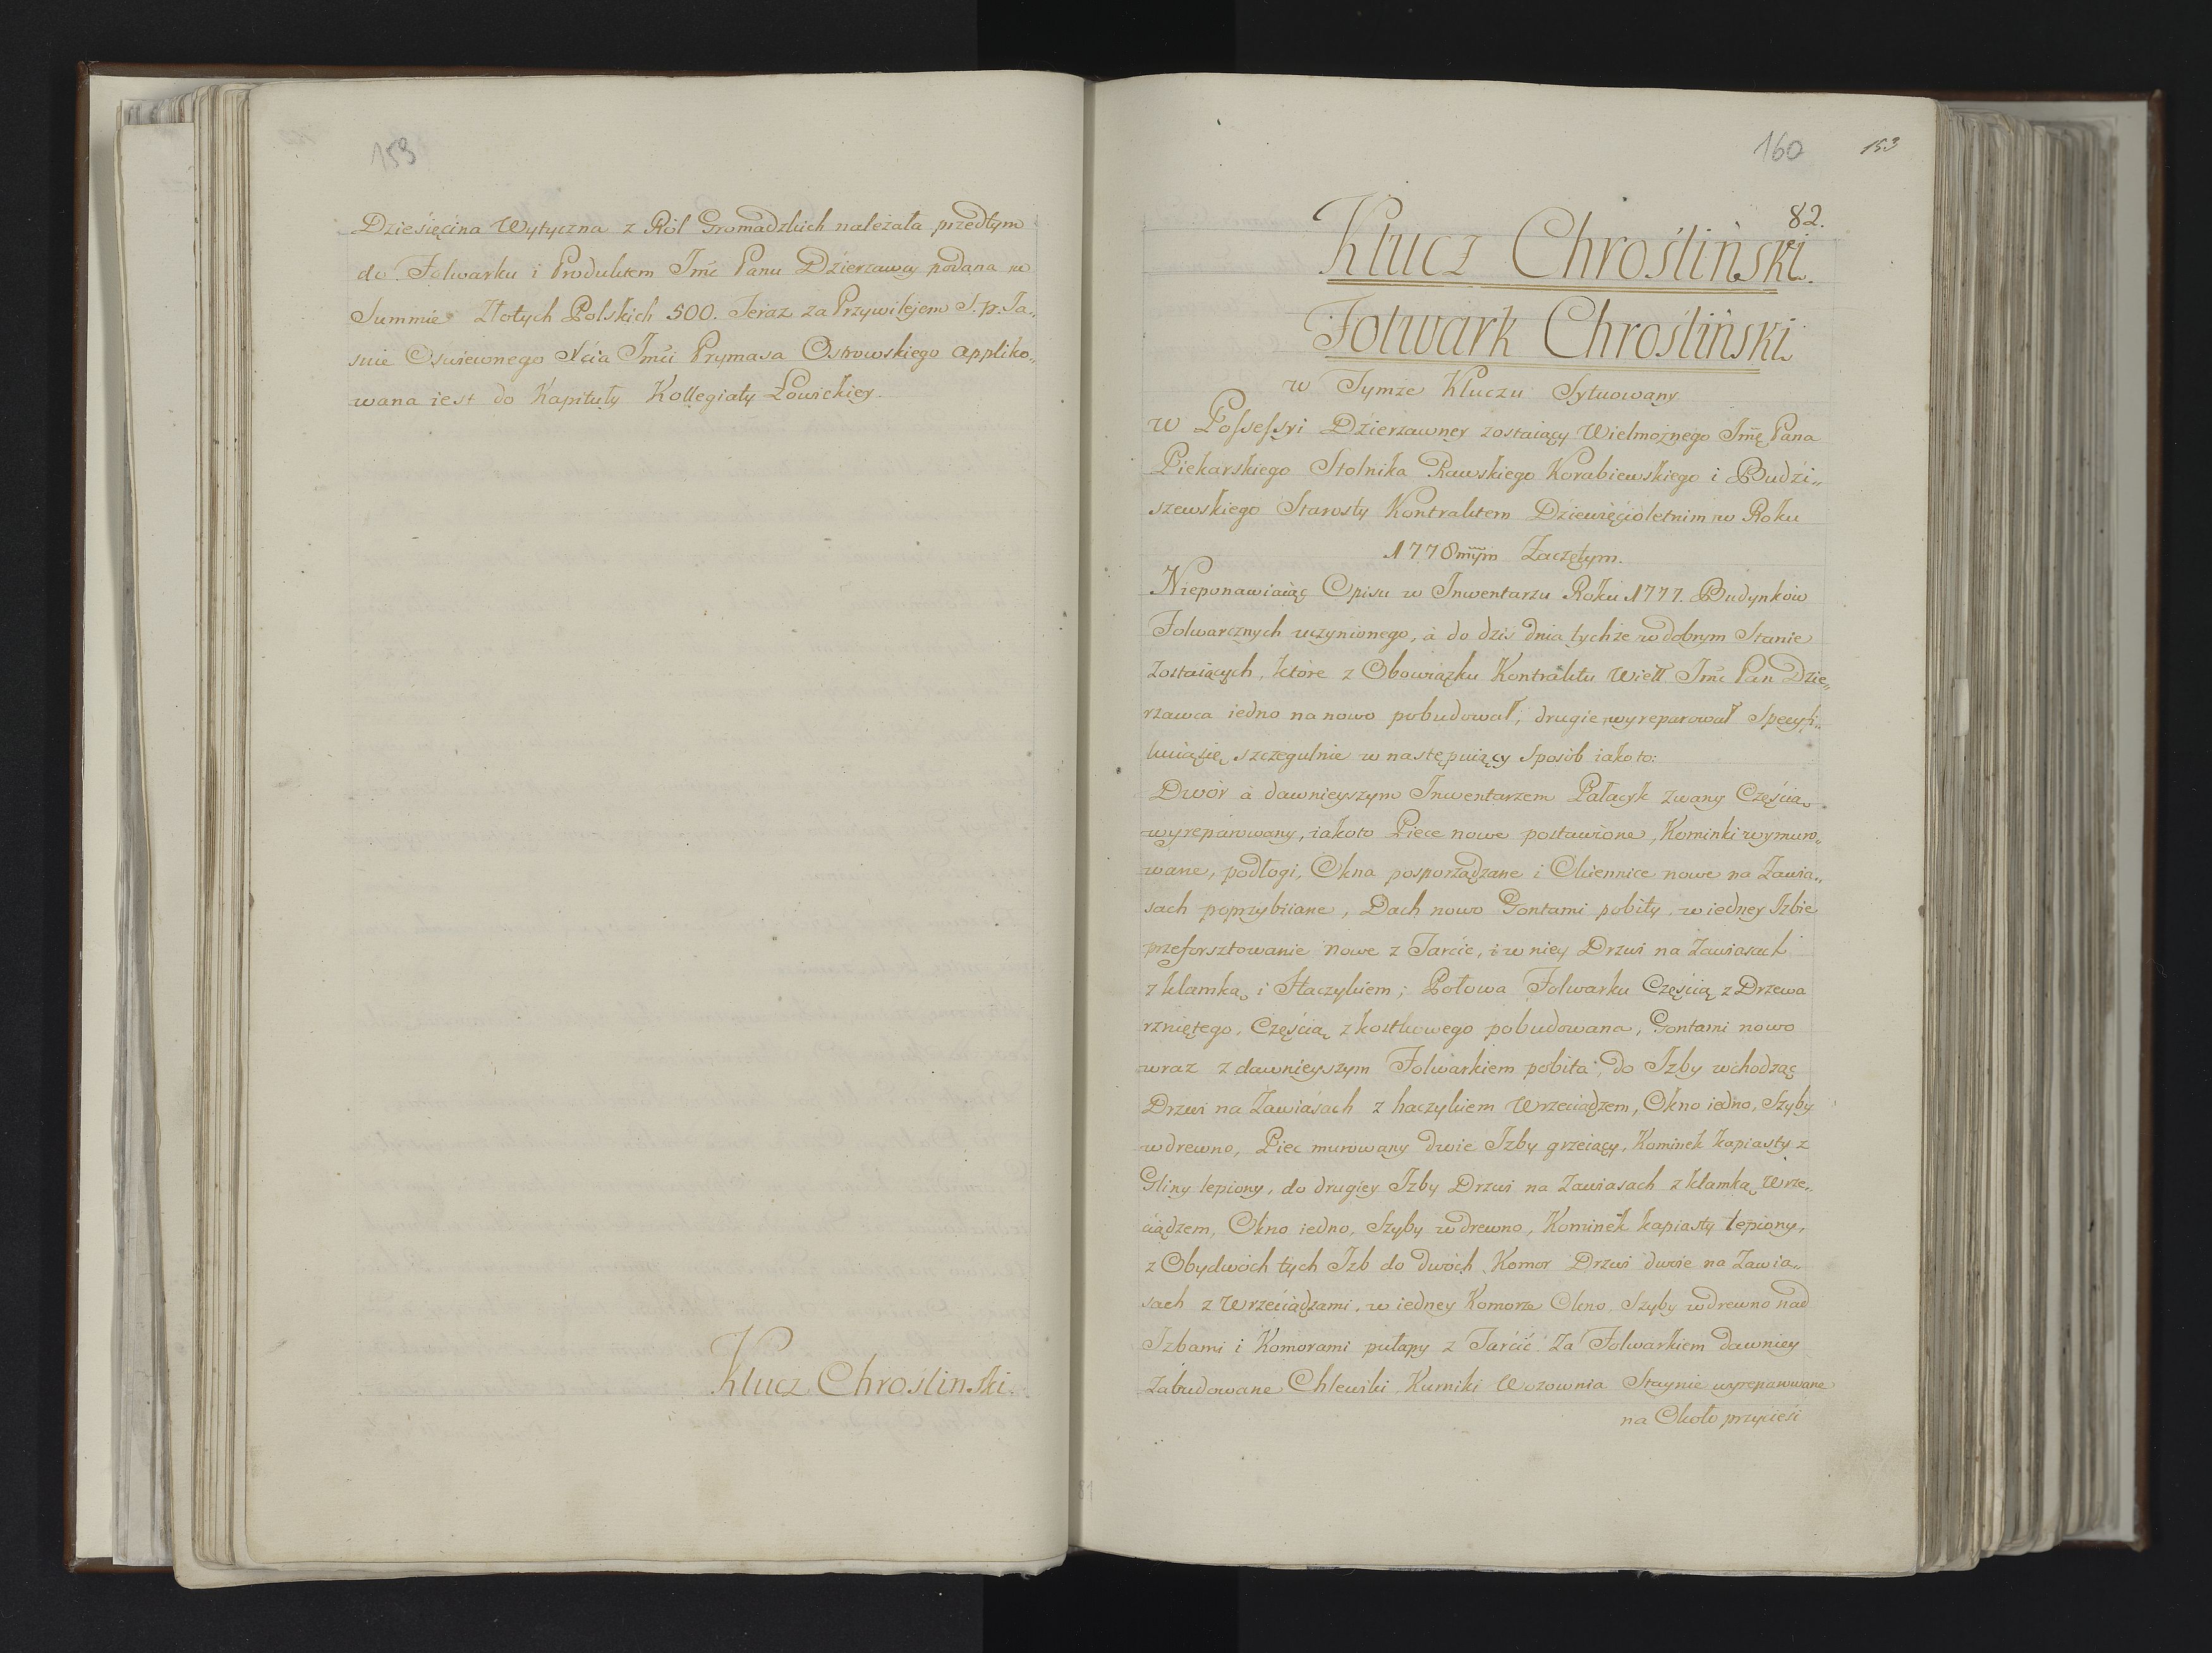 159
Dziesięcina Wytyczna z Ról Gromadzkich należała przedtym
do Folwarku i Produktem Jmć Panu Dzierzawcy podana w
Summie Złotych Polskich 500. Teraz za Przywilejem S. p. Ja„
snie Oświeconego Xcia Jmći Prymasa Ostrowskiego appliko„
wana iest do Kapituły Kollegiaty Łowickiey.
Klucz Chroslinski.
160 153
82.
Klucz Chrośliński.
Folwark Chrośliński.
w Tymze Kluczu Sytuowany
w Possessyi Dzierzawney zostaiący Wielmożnego Jmę Pana
Piekarskiego Stolnika Rawskiego Korabiewskiego i Budzi„
szewskiego Starosty Kontraktem Dziewięcioletnim w Roku
1778mym Zaczętym.
Nieponawiaiąc Opisu w Inwentarzu Roku 1777. Budynków
Folwarcznych uczynionego, à do dziś dnia tychże w dobrym Stanie
zostaiących, które z Obowiązku Kontraktu Wiell Jmć Pan Dzie„
rzawca iedno na nowo pobudował, drugie wyreparował Specyfi„
kuią się szczegulnie w następuiący Sposób iako to:
Dwór à dawnieyszym Inwentarzem Pałacyk zwany Częścią
wyreparowany, iakoto Piece nowe postawione, Kominki wymuro„
wane, podłogi, Okna posporządzane i Okiennice nowe na Zawia„
sach poprzybiiane, Dach nowo Gontami pobity, w iedney Izbie
przeforsztowanie nowe z Tarcic, i w niey Drzwi na Zawiasach
z klamką i Haczykiem; Połowa Folwarku Częścią z Drzewa
rzniętego, Częścią z kostkowego pobudowana, Gontami nowo
wraz z dawnieyszym Folwarkiem pobita, do Izby wchodząc
Drzwi na Zawiasach z haczykiem Wrzeciądzem, Okno iedno, Szyby
w drewno, Piec murowany dwie Izby grzeiący, Kominek kapiasty z
Gliny lepiony, do drugiey Izby Drzwi na Zawiasach z klamką Wrze„
ciądzem, Okno iedno, Szyby w drewno, Kominek kapiasty lepiony,
z Obydwóch tych Izb do dwóch Komor Drzwi dwoie na Zawia„
sach z Wrzeciądzami, w iedney Komorze Okno, Szyby w drewno nad
Izbami i Komorami pułapy z Tarcic. Za Folwarkiem dawniey
Zabudowane Chlewiki, Kurniki Wozownia Staynie wyreparowane
na Około przyciesi
81